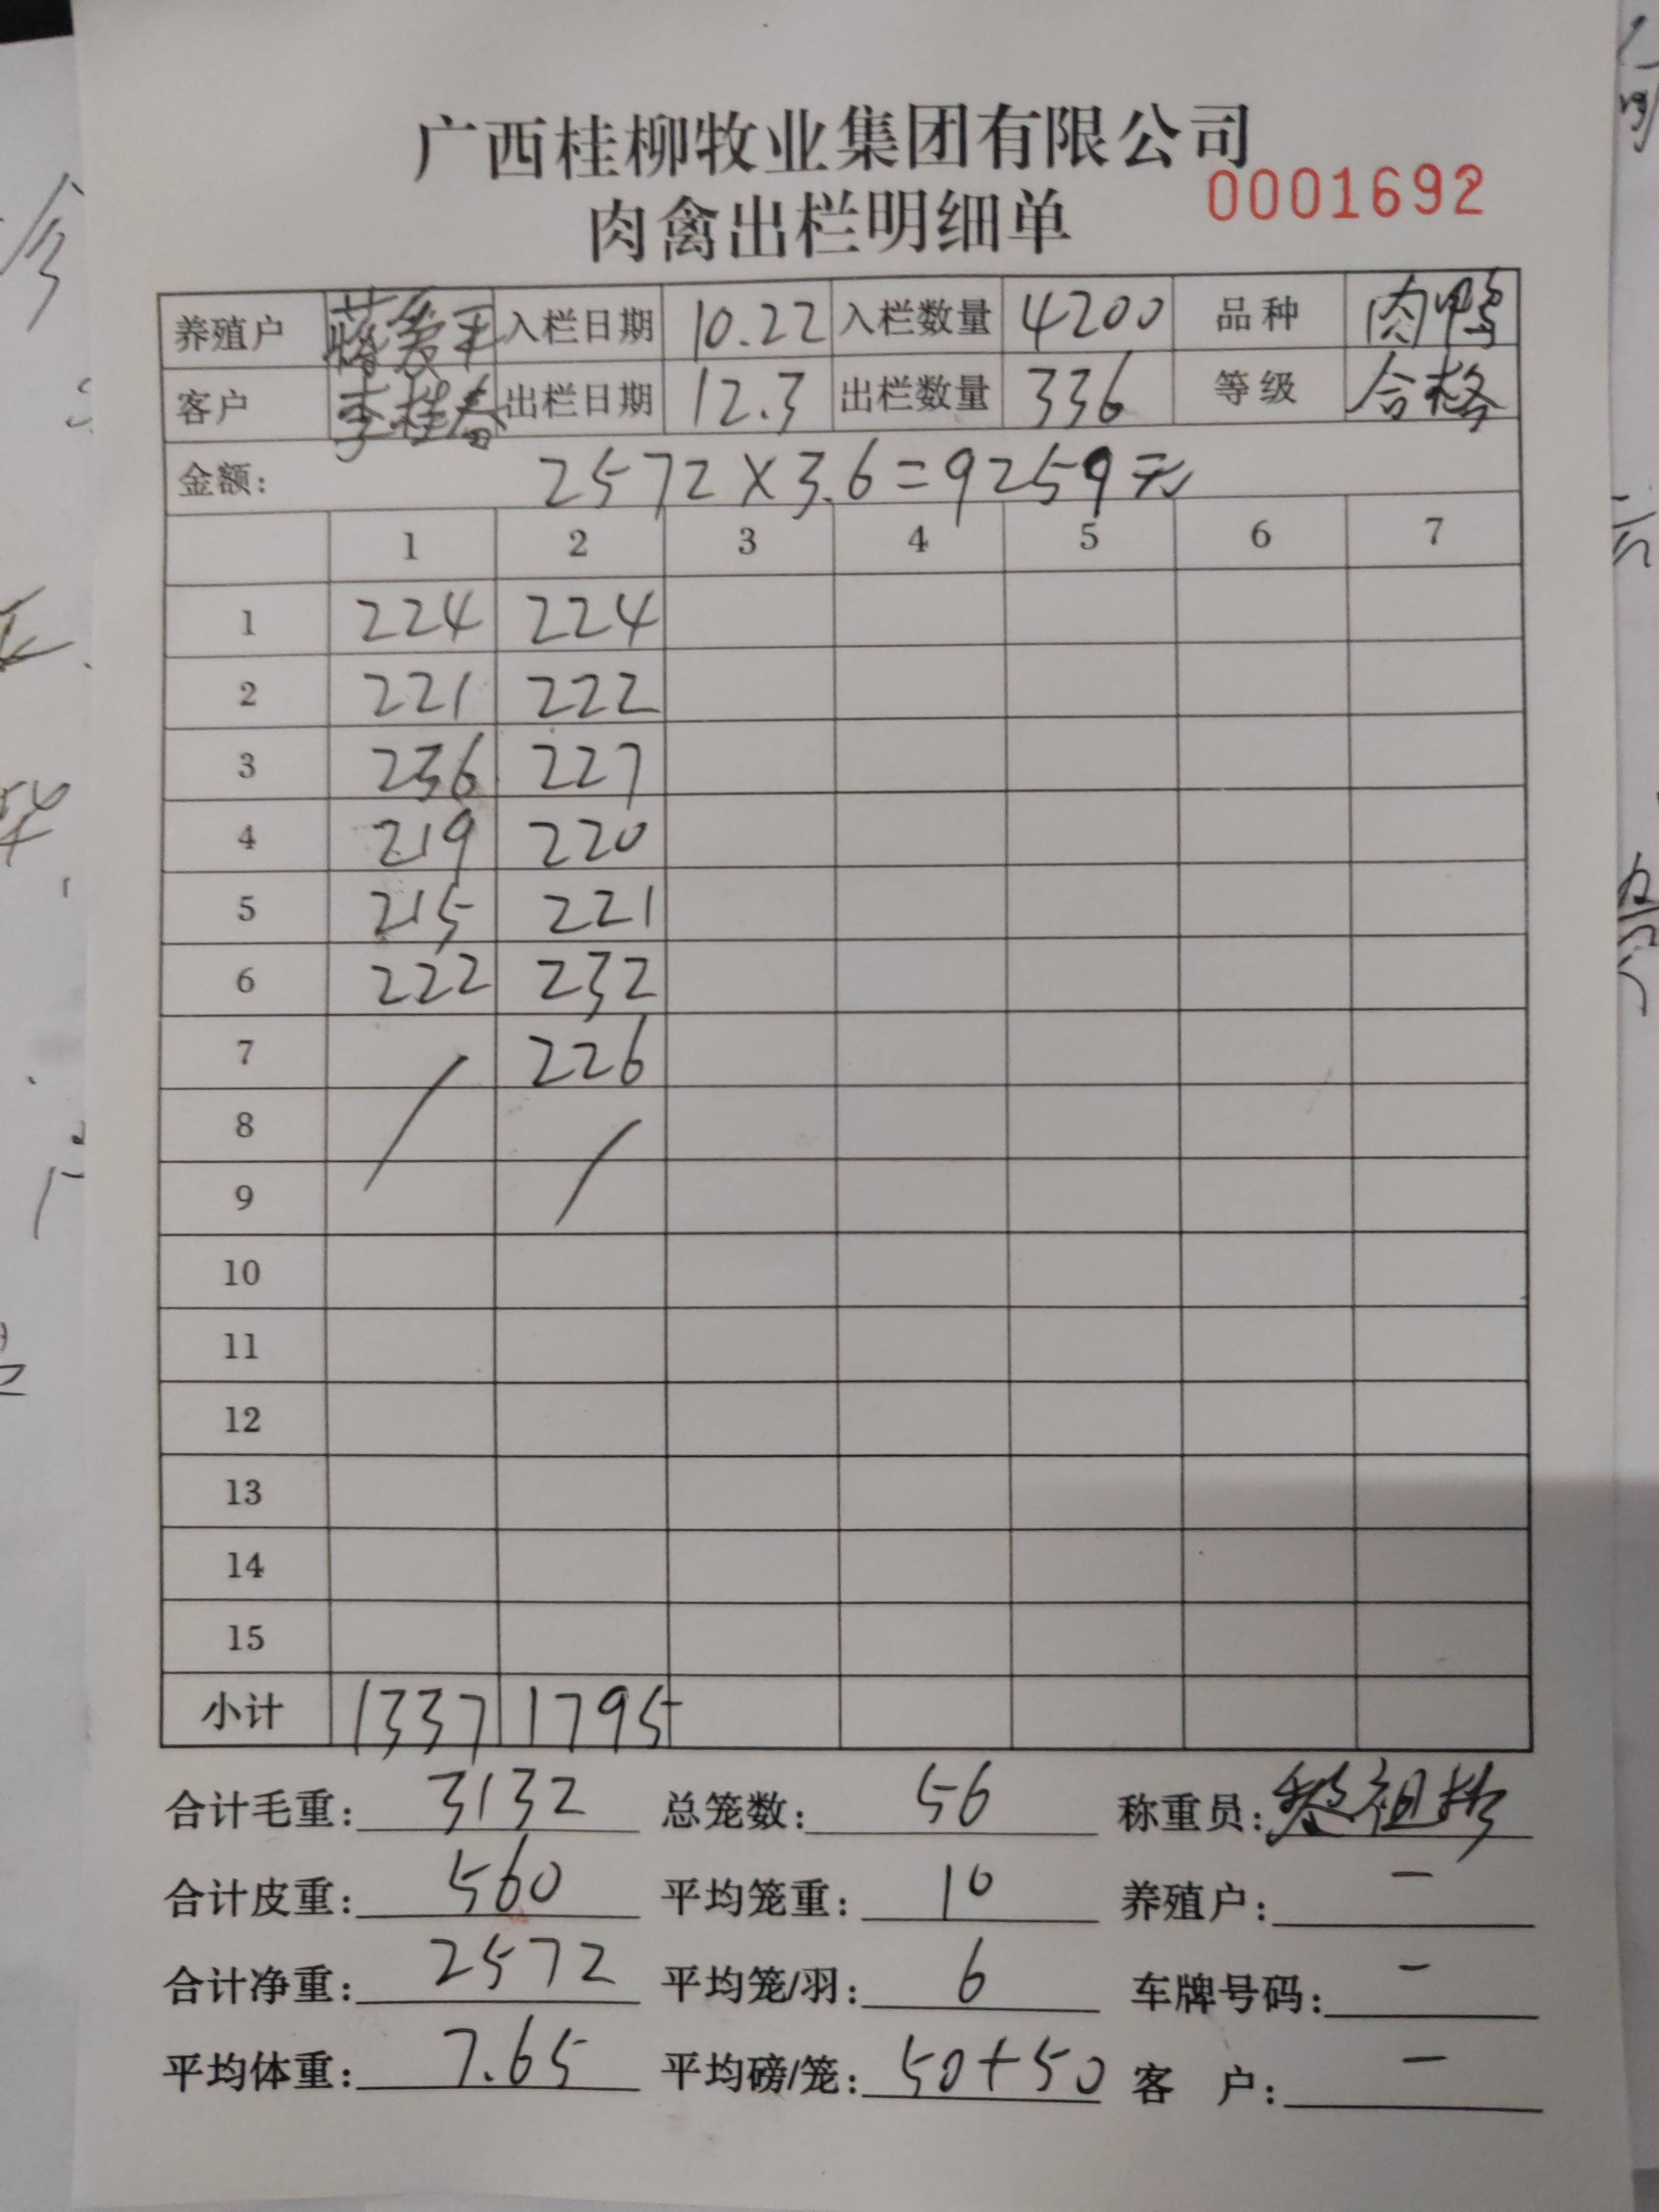 广西桂柳牧业集团有限公司
肉禽出栏明细单 0001692
养殖户 入栏日期 10.22 入栏数量 4200 品种 肉鸭
客户 李桂春 出栏日期 12.3 出栏数量 336 等级 合格
金额: 2572×3.6=9259元
1 2 3 4 5 6 7
1 224 224
2 221 222
3 236 227
4 219 220
5 215 221
6 222 232
7 226
8
9
10
11
12
13
14
15
小计 1337 1795
合计毛重: 3132 总笼数: 56 称重员:
合计皮重: 560 平均笼重: 10 养殖户: —
合计净重: 2572 平均笼/羽: 6 车牌号码: —
平均体重: 7.65 平均磅/笼: 50+50 客 户: —